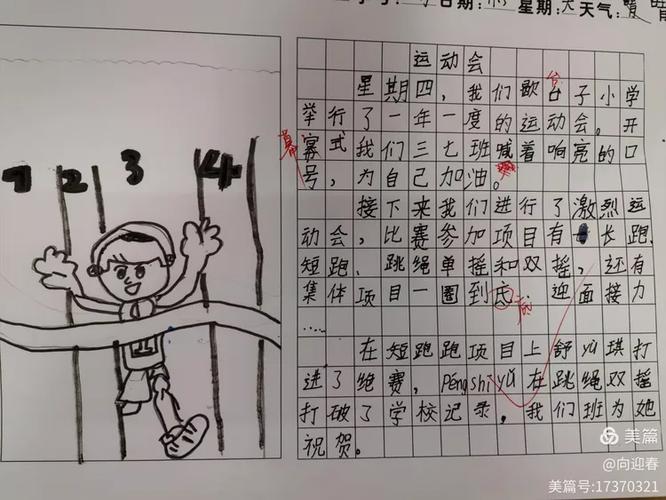 日期: 星期: 天 天气:
1 2 3 4
运动会
星期四，我们歌台子小学
举行了一年一度的运动会。开
幕
寡式我们三七班喊着响亮的口
号，为自己加油。
接下来我们进行了激烈运
动会，比赛参加项目有 长跑、
短跑、跳绳单摇和双摇，还有
集体项目一圈到底 迎面接力
……
在短跑跑项目上舒yǔ琪打
进了绝赛，péng shi yǔ在跳绳双摇
打破了学校记录，我们班为她
祝贺。
美篇
@向迎春
美篇号:17370321